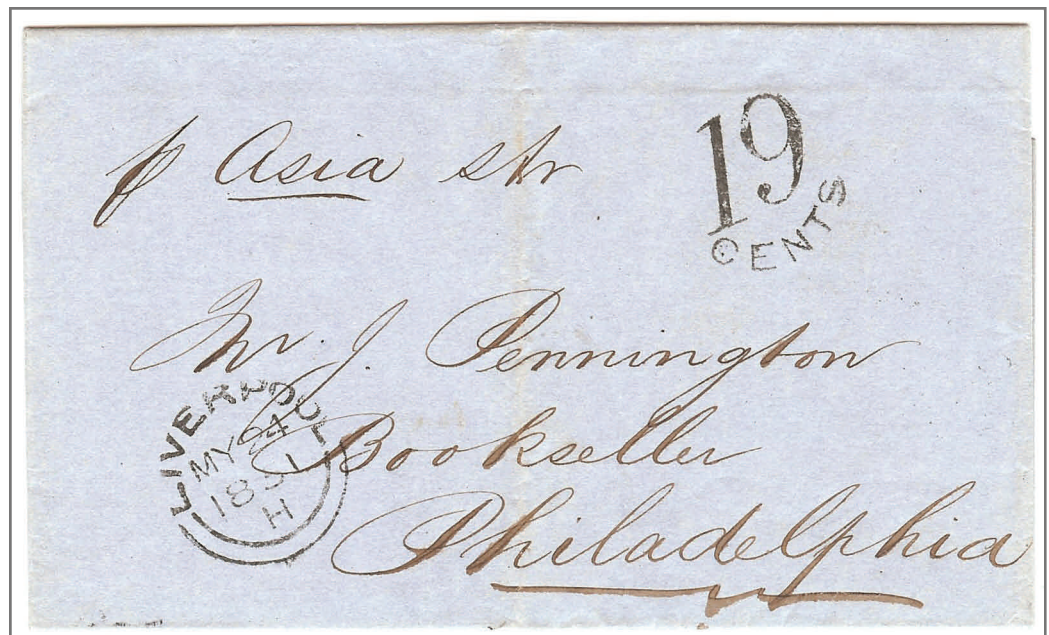 p Asia str
19
CENTS
Mr. J Pennington
Bookseller
Philadelphia
LIVERPOOL
MY 24
1851
H